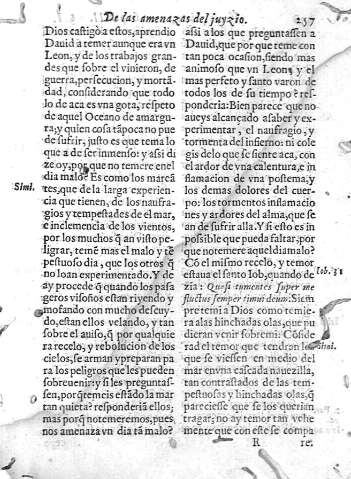 De las amenazas del juyzio. 237
Dios castigò a estos, aprendio
Dauid a temer aunque era vn
Leon, y de los trabajos gran-
des que sobre el vinieron, de
guerra, persecucion, y mortã-
dad, considerando que todo
lo de aca es vna gota, respeto
de aquel Oceano de amargu-
ra; y quien cosa tã poca no pue
de sufrir, justo es que tema lo
que a de ser inmenso: y assi di
ze oy, por que no temere en el
dia malo? Es como los mareã
Simi. tes, que de la larga experien-
cia que tienen, de los naufra-
gios y tempestades de el mar,
e inclemencia de los vientos,
por los muchos q̃ an visto pe-
ligrar, temẽ mas el malo y tẽ
pestuoso dia, que los otros q̃
no loan experimentado. Y de
ay procede q̃ quando los pasa
geros visoños estan riyendo y
mofando con mucho descuy-
do, estan ellos velando, y tan
sobre el auiso, q̃ por qualquie
ra recelo, y rebolucion de los
cielos, se arman y preparan pa
ra los peligros que les pueden
sobreuenir: y si les preguntas-
sen, por q̃ temeis estãdo la mar
tan quieta? responderiã ellos;
mas porq̃ no temeremos, pues
nos amenaza vn dia tã malo?
assi a los que preguntassen a
Dauid, que por que teme con
tan poca ocasion, siendo mas
animoso que vn Leon, y el
mas perfeto y santo varon de
todos los de su tiempo? res-
ponderia: Bien parece que no
aueys alcançado a saber y ex-
perimentar, el naufragio, y
tormenta del infierno: ni cole
gis delo que se siente aca, con
el ardor de vna calentura, e in
flamacion de vna postema, y
los demas dolores del cuer-
po: los tormentos inflamacio
nes y ardores del alma, que se
an de sufrir alla. Y si esto es in
possible que pueda faltar, por
que no temere aquel dia malo?
Cõ el mismo recelo, y temor
estaua el santo Iob, quando de Iob. 31
zia: Quasi tumentes super me
fluctus semper timui deum: Siem
pre temi a Dios como temie-
ra a las hinchadas olas, que pu
dieran venir sobre mi. Cõside-
rad el temor que tendran los
que se viessen en medio del
mar en vna cascada nauezilla,
tan contrastados de las tem-
pestuosas y hinchadas olas, q̃
pareciesse que se los querian
tragar; no ay temor tan vehe
mente que con este se compa
R re,